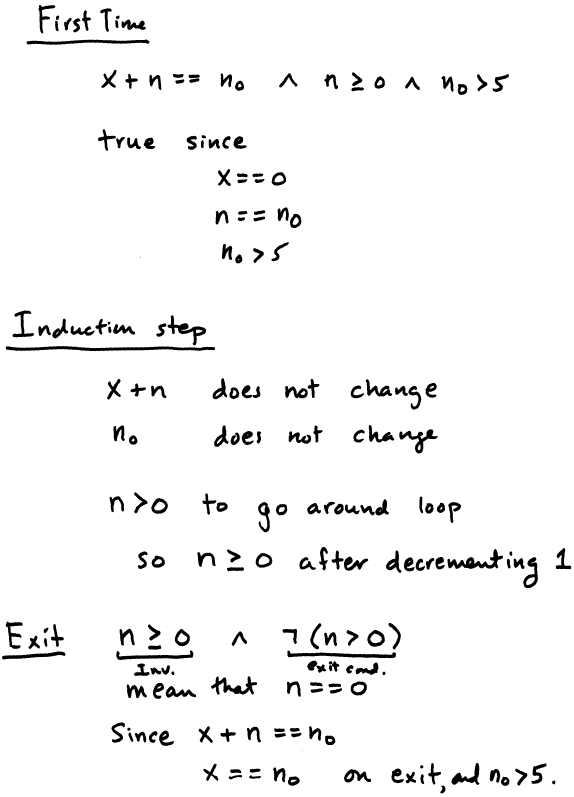 First Time
x + n == n₀ ∧ n ≥ 0 ∧ n₀ > 5
true since
x == 0
n == n₀
n₀ > 5
Induction step
x + n does not change
n₀ does not change
n > 0 to go around loop
so n ≥ 0 after decrementing 1
Exit n ≥ 0 ∧ ¬(n > 0)
Inv. exit cond.
mean that n == 0
Since x + n == n₀
x == n₀ on exit, and n₀ > 5.